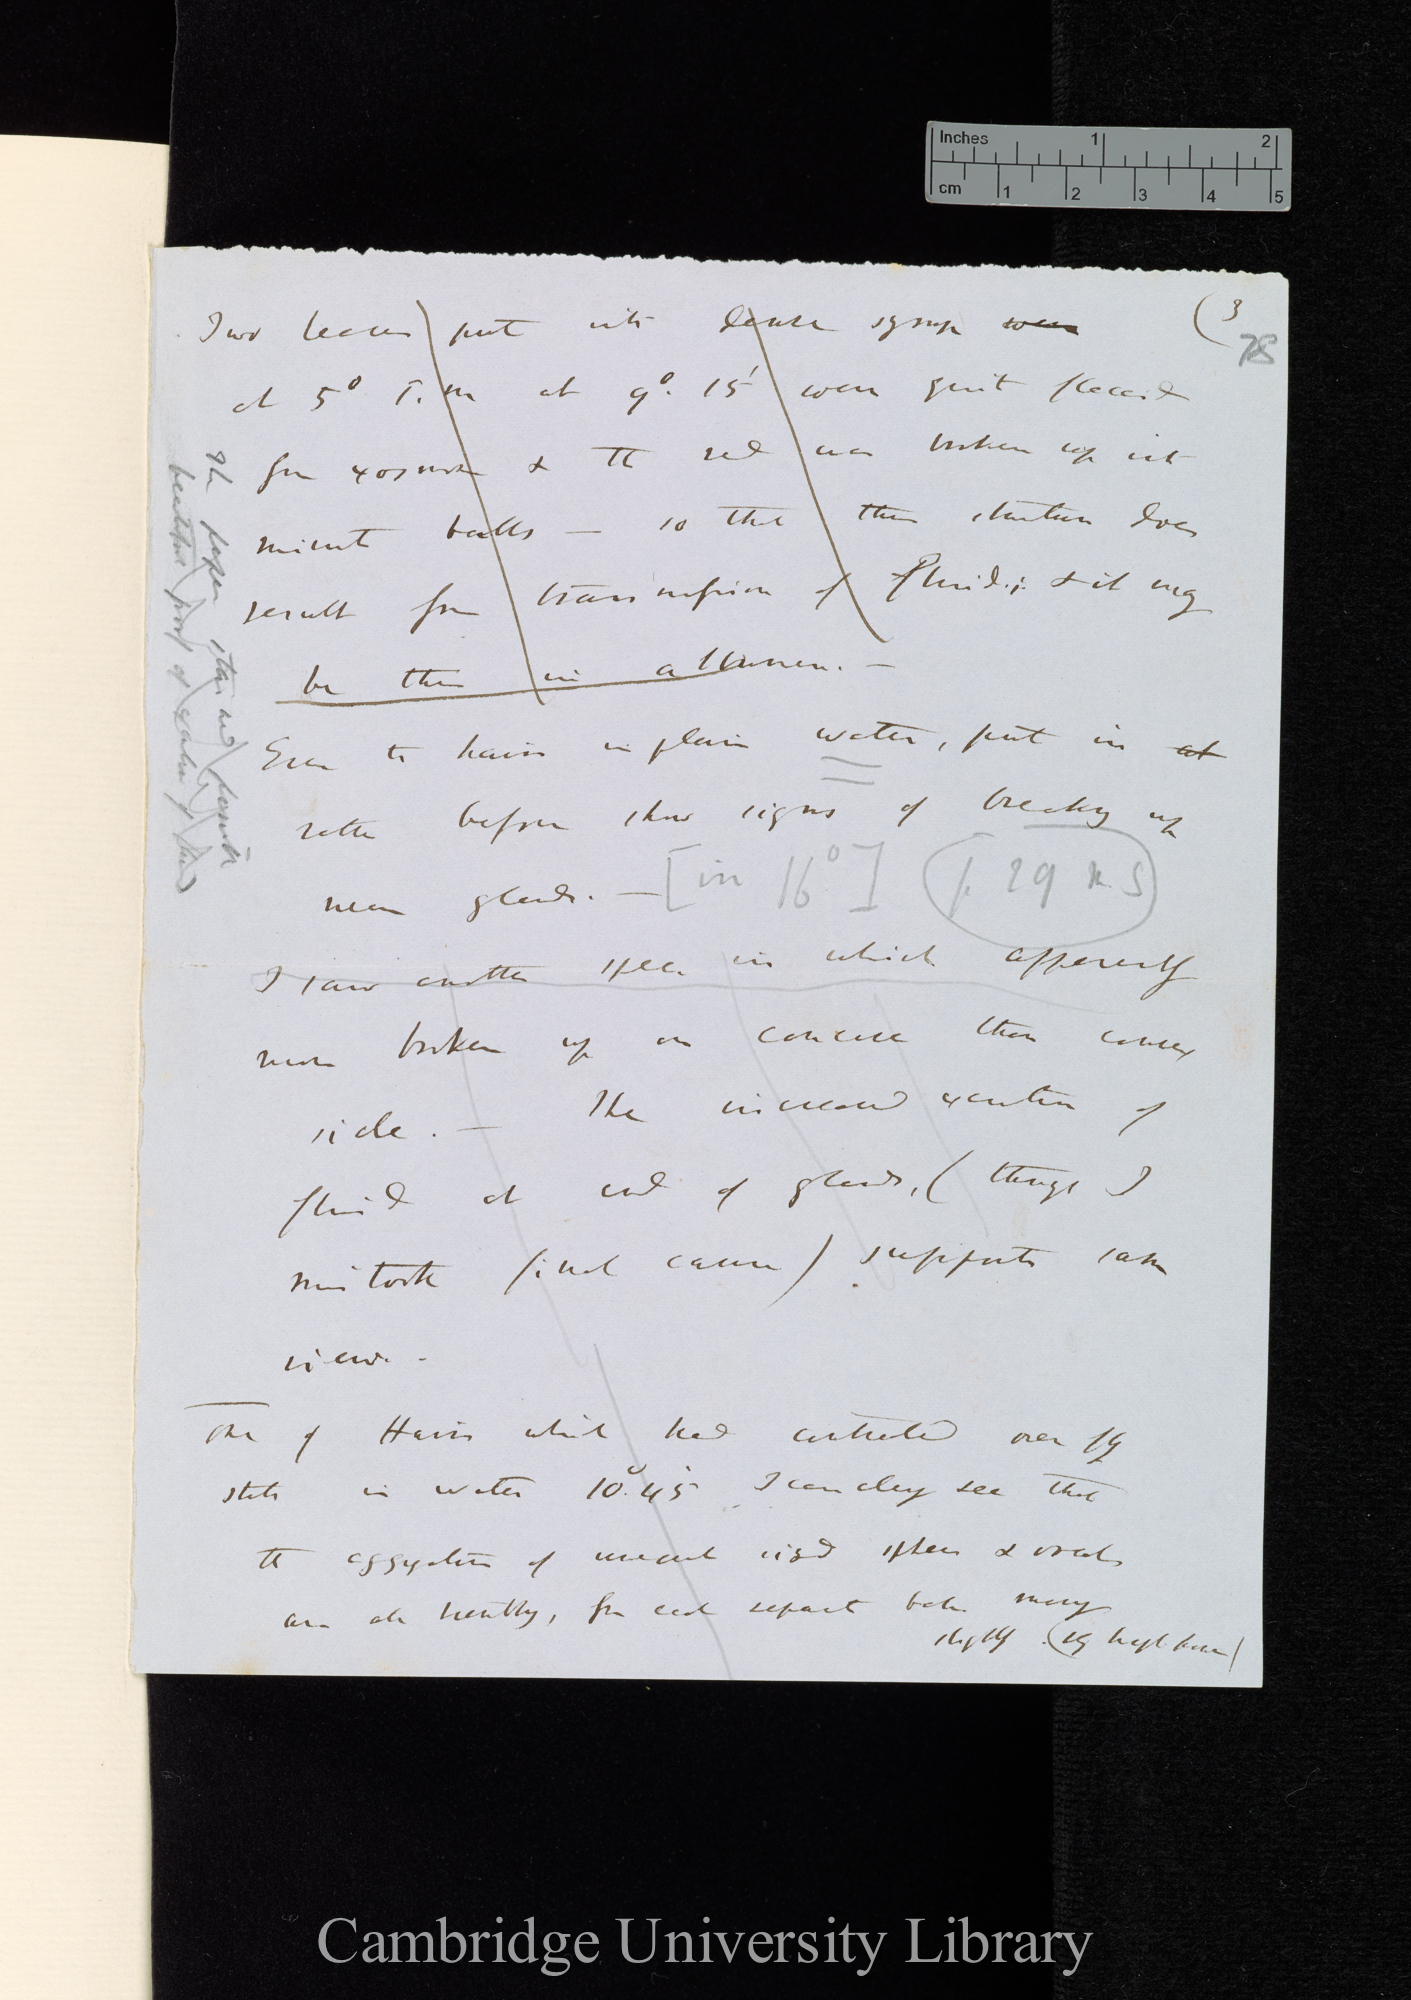 Inches 1 2
cm 1 2 3 4 5
(3
78
Two leaves put into dense syrup were
at 5° P.m at 9°. 15' were quite flaccid
from exosmose & the red was broken up into
minute balls — so that this structure does
result from transmission of fluid; & it may
be then in albumen. —
Even the hairs in plain water, put in at
before show signs of breaking up
near glands. — [in 16°] (p. 29 M.S)
I saw another spec. in which apparently
more broken up on concave than convex
side. — The increased excretion of
fluid at end of glands, (things I
mistook final cause) supports same
view. -
One of Hairs which had contracted over fly
state in water 10°. 45' I can clearly see that
the aggregation of red spheres & ovals
are healthy, for each separate many
slightly
The paper stained
beautiful proof of of fluid
Cambridge University Library